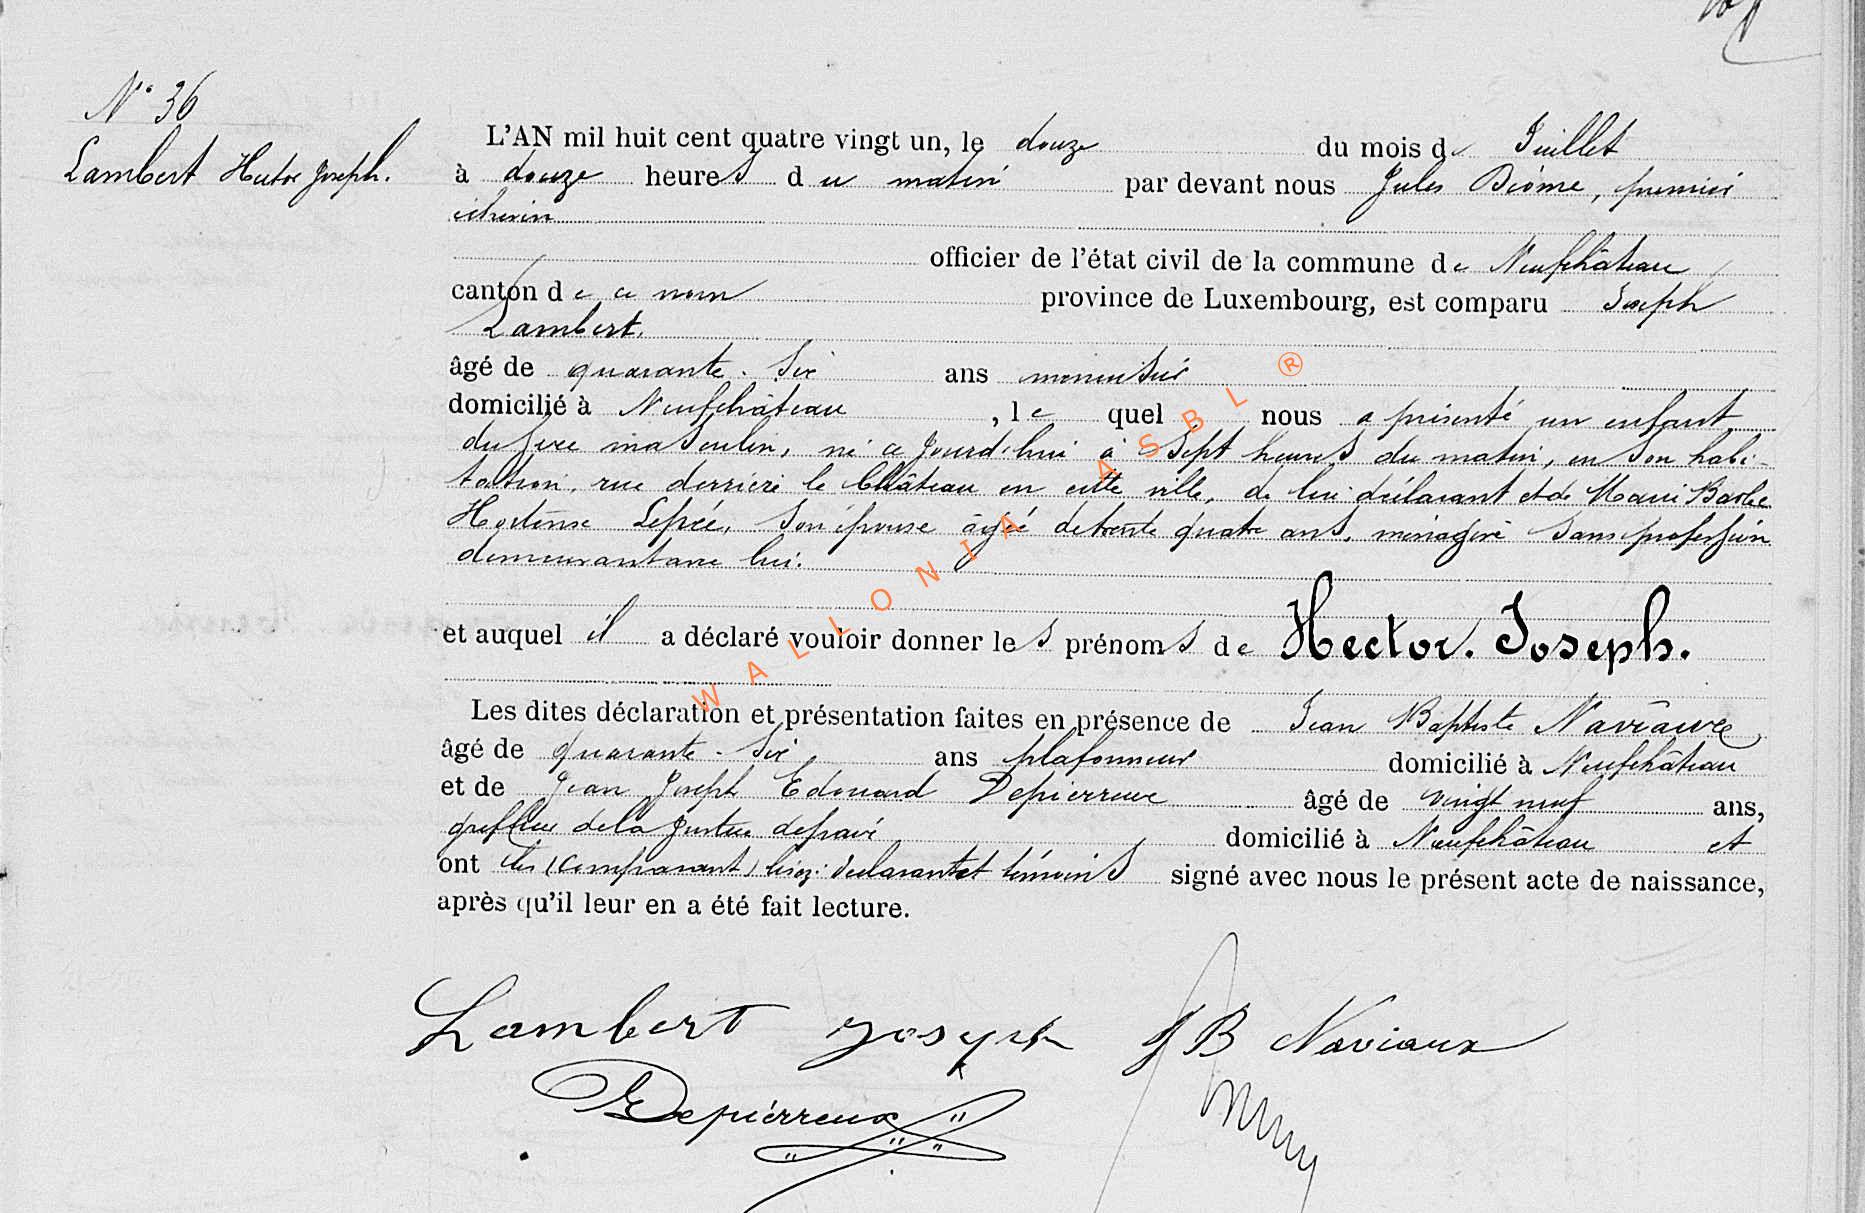 N° 36
Lambert Hector Joseph.
L'AN mil huit cent quatre vingt un, le douze du mois de Juillet
à douze heures du matin par devant nous Jules Diome, premier
échevin
officier de l'état civil de la commune de Neufchâteau
canton de ce nom province de Luxembourg, est comparu Joseph
Lambert.
âgé de quarante-six ans menuisier
domicilié à Neufchâteau, le quel nous a présenté un enfant
du sexe masculin, né ce jourd'hui à sept heures du matin, en son habi-
tation, rue derrière le Château en cette ville, de lui déclarant et de Marie Barbe
Hortense Lepée, son épouse âgée de trente quatre ans, ménagère sans profession
demeurant avec lui.
et auquel il a déclaré vouloir donner les prénoms de Hector. Joseph.
Les dites déclaration et présentation faites en présence de Jean Baptiste Naviaux
âgé de quarante-six ans plafonneur domicilié à Neufchâteau
et de Jean Joseph Edouard Depierreux âgé de vingt neuf ans,
greffier de la justice de paix domicilié à Neufchâteau et
ont les (comparant) lisez: déclarant et témoins signé avec nous le présent acte de naissance,
après qu'il leur en a été fait lecture.
Lambert Joseph JB Naviaux
Depierreux
WALLONIA ASBL ®